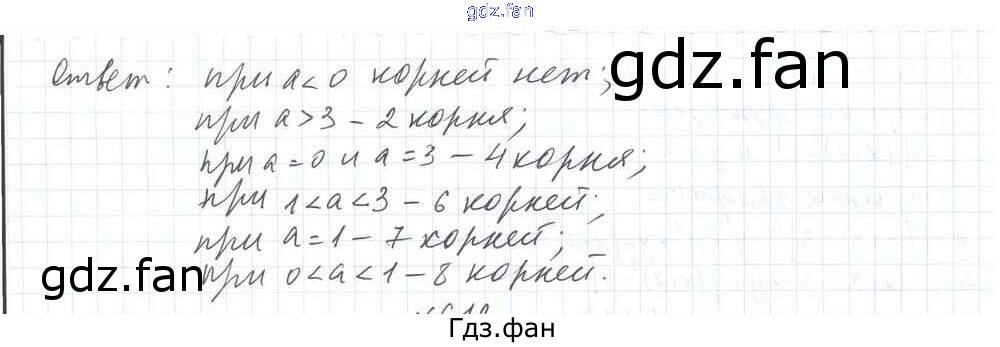 gdz.fan
Ответ: при a<0 корней нет;
gdz.fan
при a>3 – 2 корня;
при a=0 и a=3 – 4 корня;
при 1<a<3 – 6 корней;
при a=1 – 7 корней;
gdz.fan
при 0<a<1 – 8 корней.
Гдз.фан